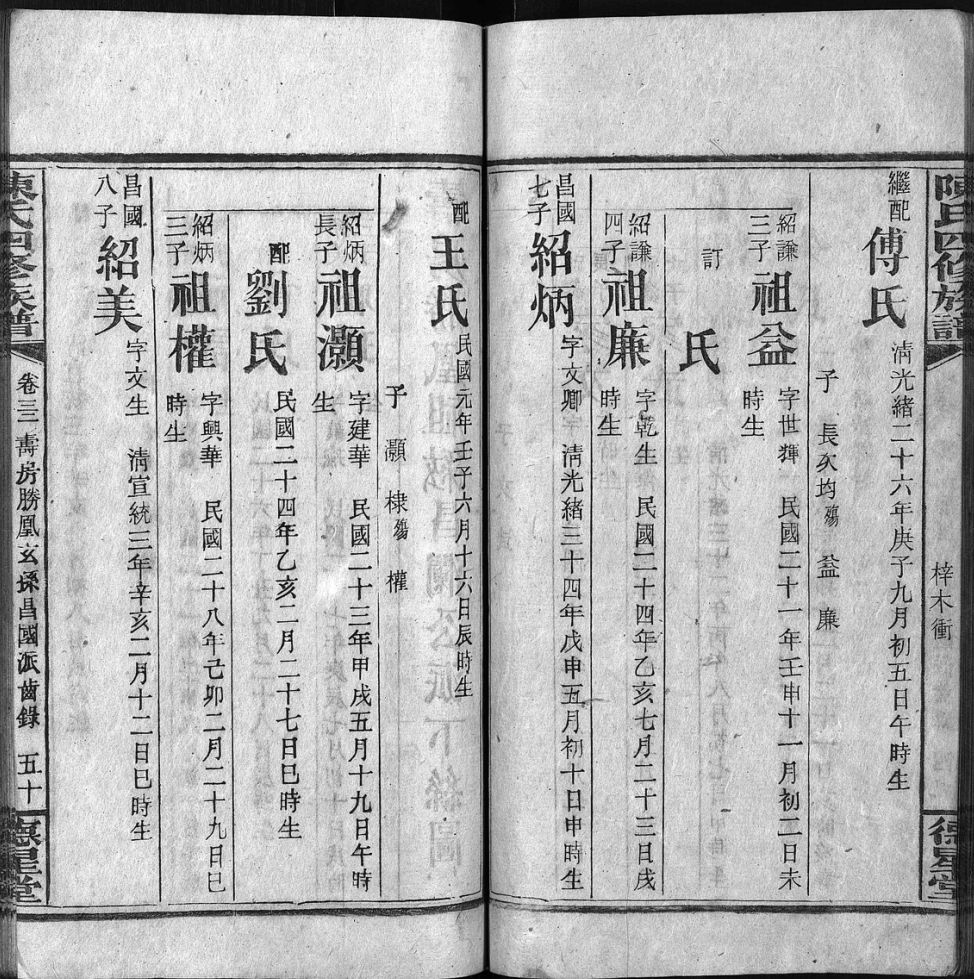 陳氏四修族譜
梓木衝
德星堂
繼配
傅氏
清光緒二十六年庚子九月初五日午時生
子 長亥均殤 益 廉
紹謙
三子
祖益
字世輝 民國二十一年壬申十一月初二日未
時生
訂
氏
紹謙
四子
祖廉
字乾生 民國二十四年乙亥七月二十三日戌
時生
昌國
七子
紹炳
字文卿 清光緒三十四年戊申五月初十日申時生
配
王氏
民國元年壬子六月十六日辰時生
子 灝 棣殤 權
紹炳
長子
祖灝
字建華 民國二十三年甲戌五月十九日午時
生
配
劉氏
民國二十四年乙亥二月二十七日巳時生
紹炳
三子
祖權
字興華 民國二十八年己卯二月二十九日巳
時生
昌國
八子
紹美
字文生 清宣統三年辛亥二月十二日巳時生
陳氏四修族譜
卷三三 壽房勝凰玄孫昌國派齒錄 五十
德星堂